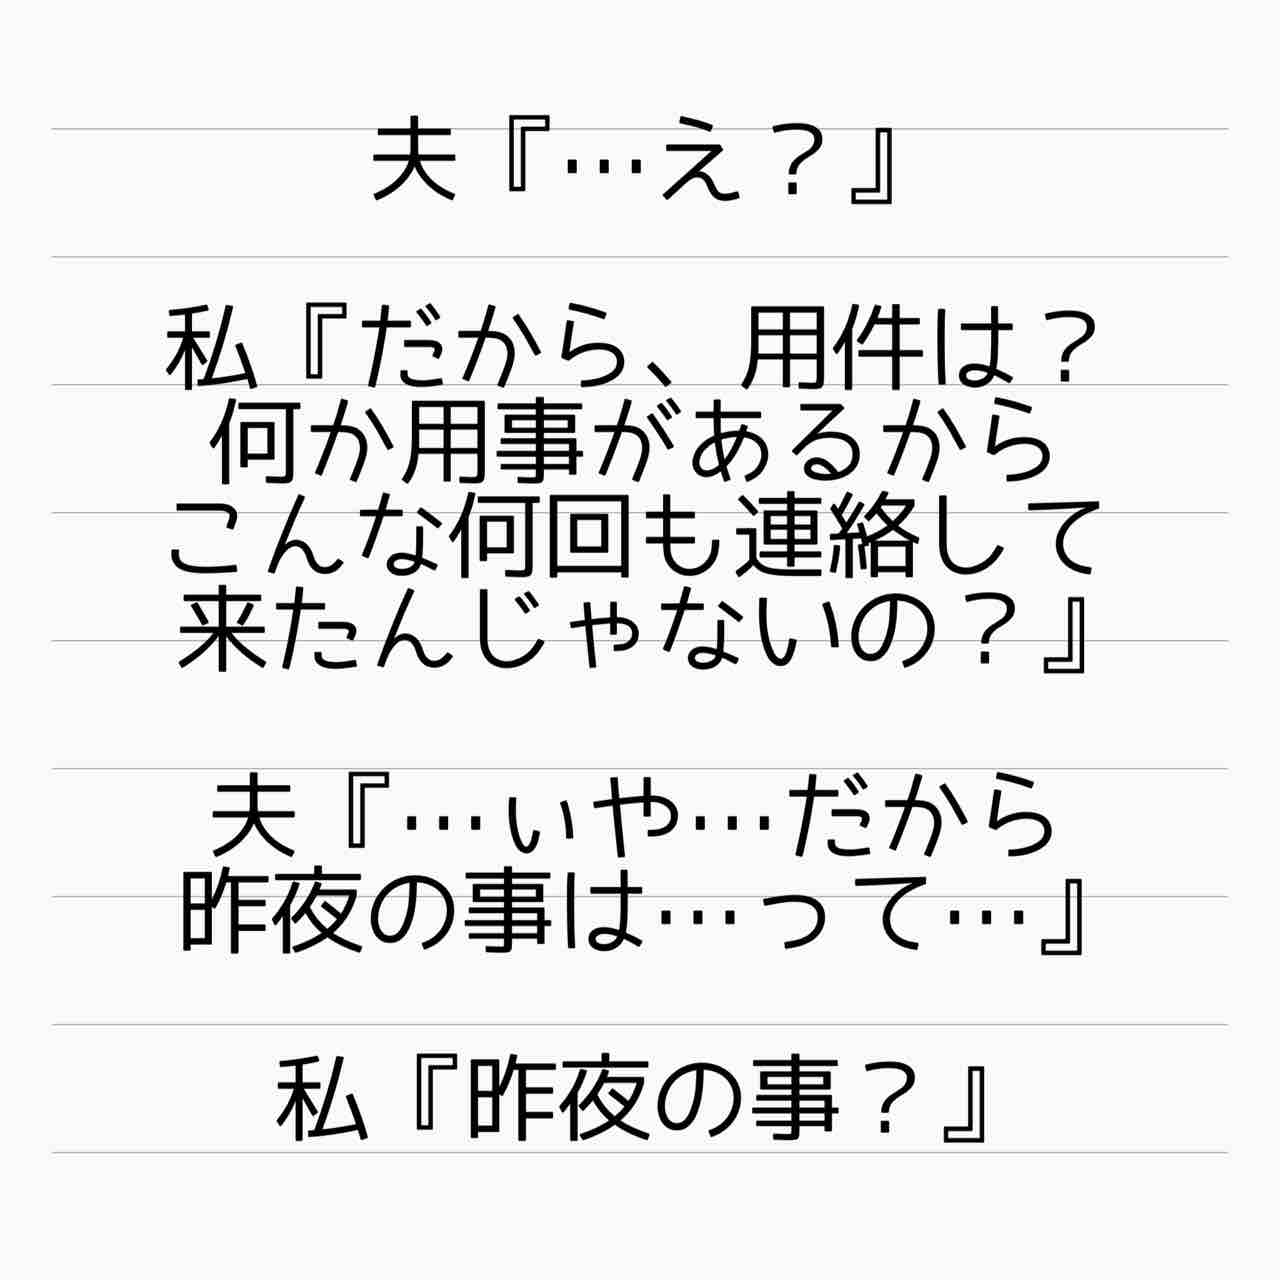 夫『…え？』
私『だから、用件は？
何か用事があるから
こんな何回も連絡して
来たんじゃないの？』
夫『…ぃや…だから
昨夜の事は…って…』
私『昨夜の事？』